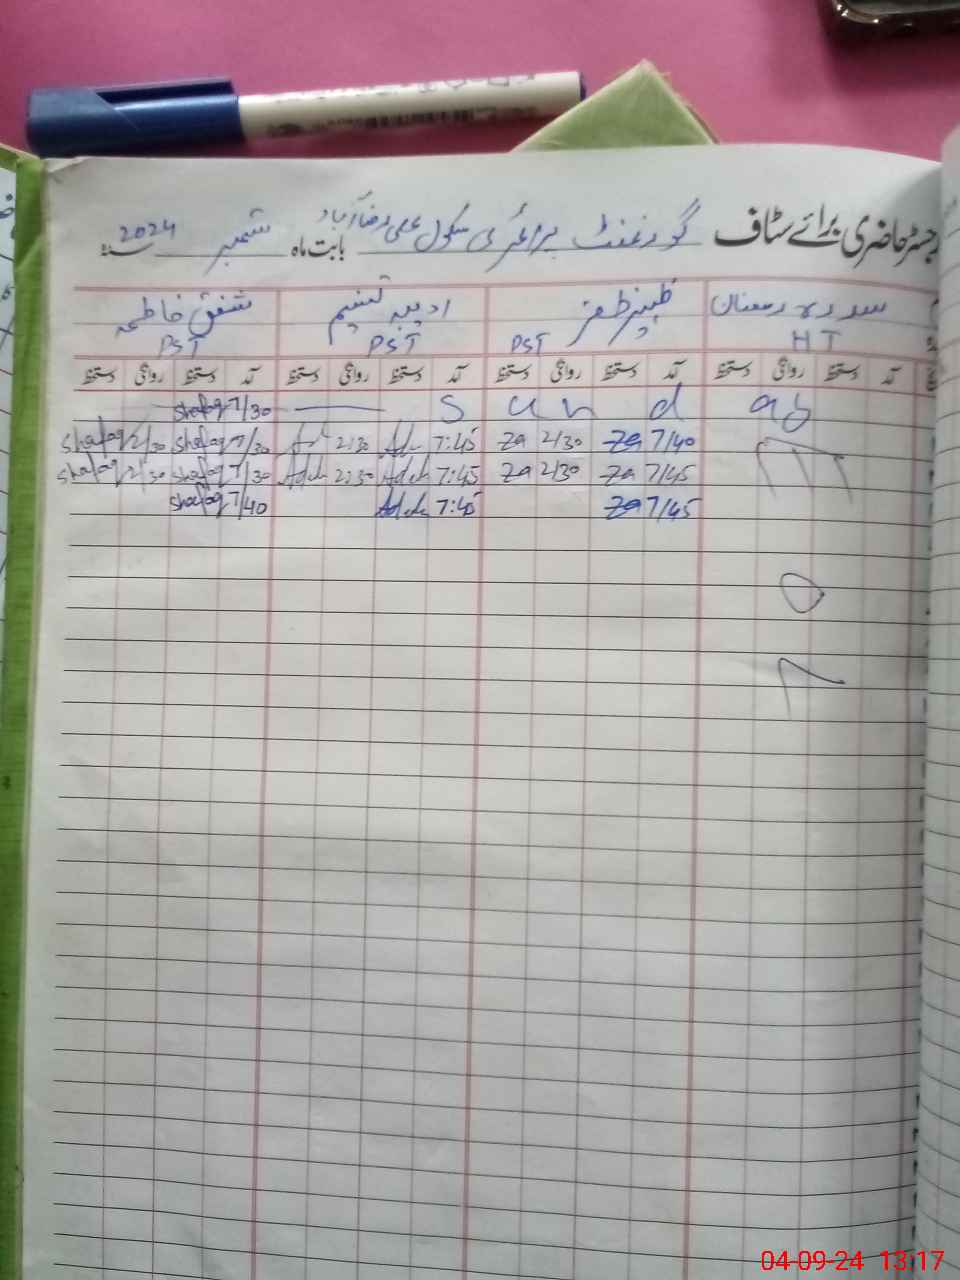 رجسٹر حاضری برائے سٹاف گورنمنٹ پرائمری سکول علی رضا آباد بابت ماہ ستمبر سنہ 2024
سدرہ رمضان ظہیر ظفر ادیبہ تسنیم شفق فاطمہ
HT PST PST PST
آمد دستخط روانگی دستخط آمد دستخط روانگی دستخط آمد دستخط روانگی دستخط آمد دستخط روانگی دستخط
Shafaq 7/30 S u n d ay
Shafaq 2/30 Shafaq 7/30 2:30 7:45 Za 2/30 Za 7/40
Shafaq 2/30 Shafaq 7/30 Adeeb 2:30 Adeeb 7:45 Za 2/30 Za 7/45
Shafaq 7/40 Adeeb 7:45 Za 7/45
04-09-24 13:17